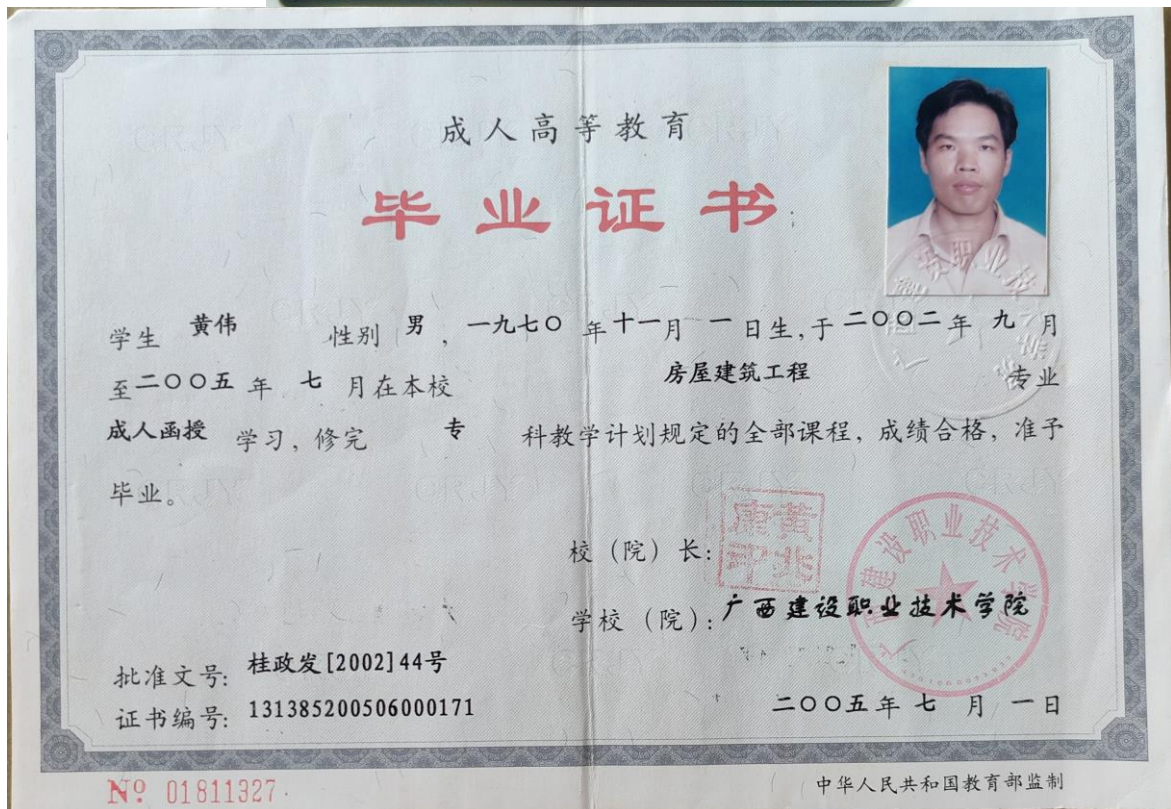 成人高等教育
毕业证书
学生 黄伟 性别 男 , 一九七〇 年 十一 月 一 日生, 于 二〇〇二 年 九 月
至 二〇〇五 年 七 月在本校 房屋建筑工程 专业
成人函授 学习, 修完 专 科教学计划规定的全部课程, 成绩合格, 准予
毕业。
校 (院) 长:
学校 (院): 广西建设职业技术学院
批准文号: 桂政发[2002]44号
证书编号: 131385200506000171
二〇〇五 年 七 月 一 日
№ 01811327
中华人民共和国教育部监制